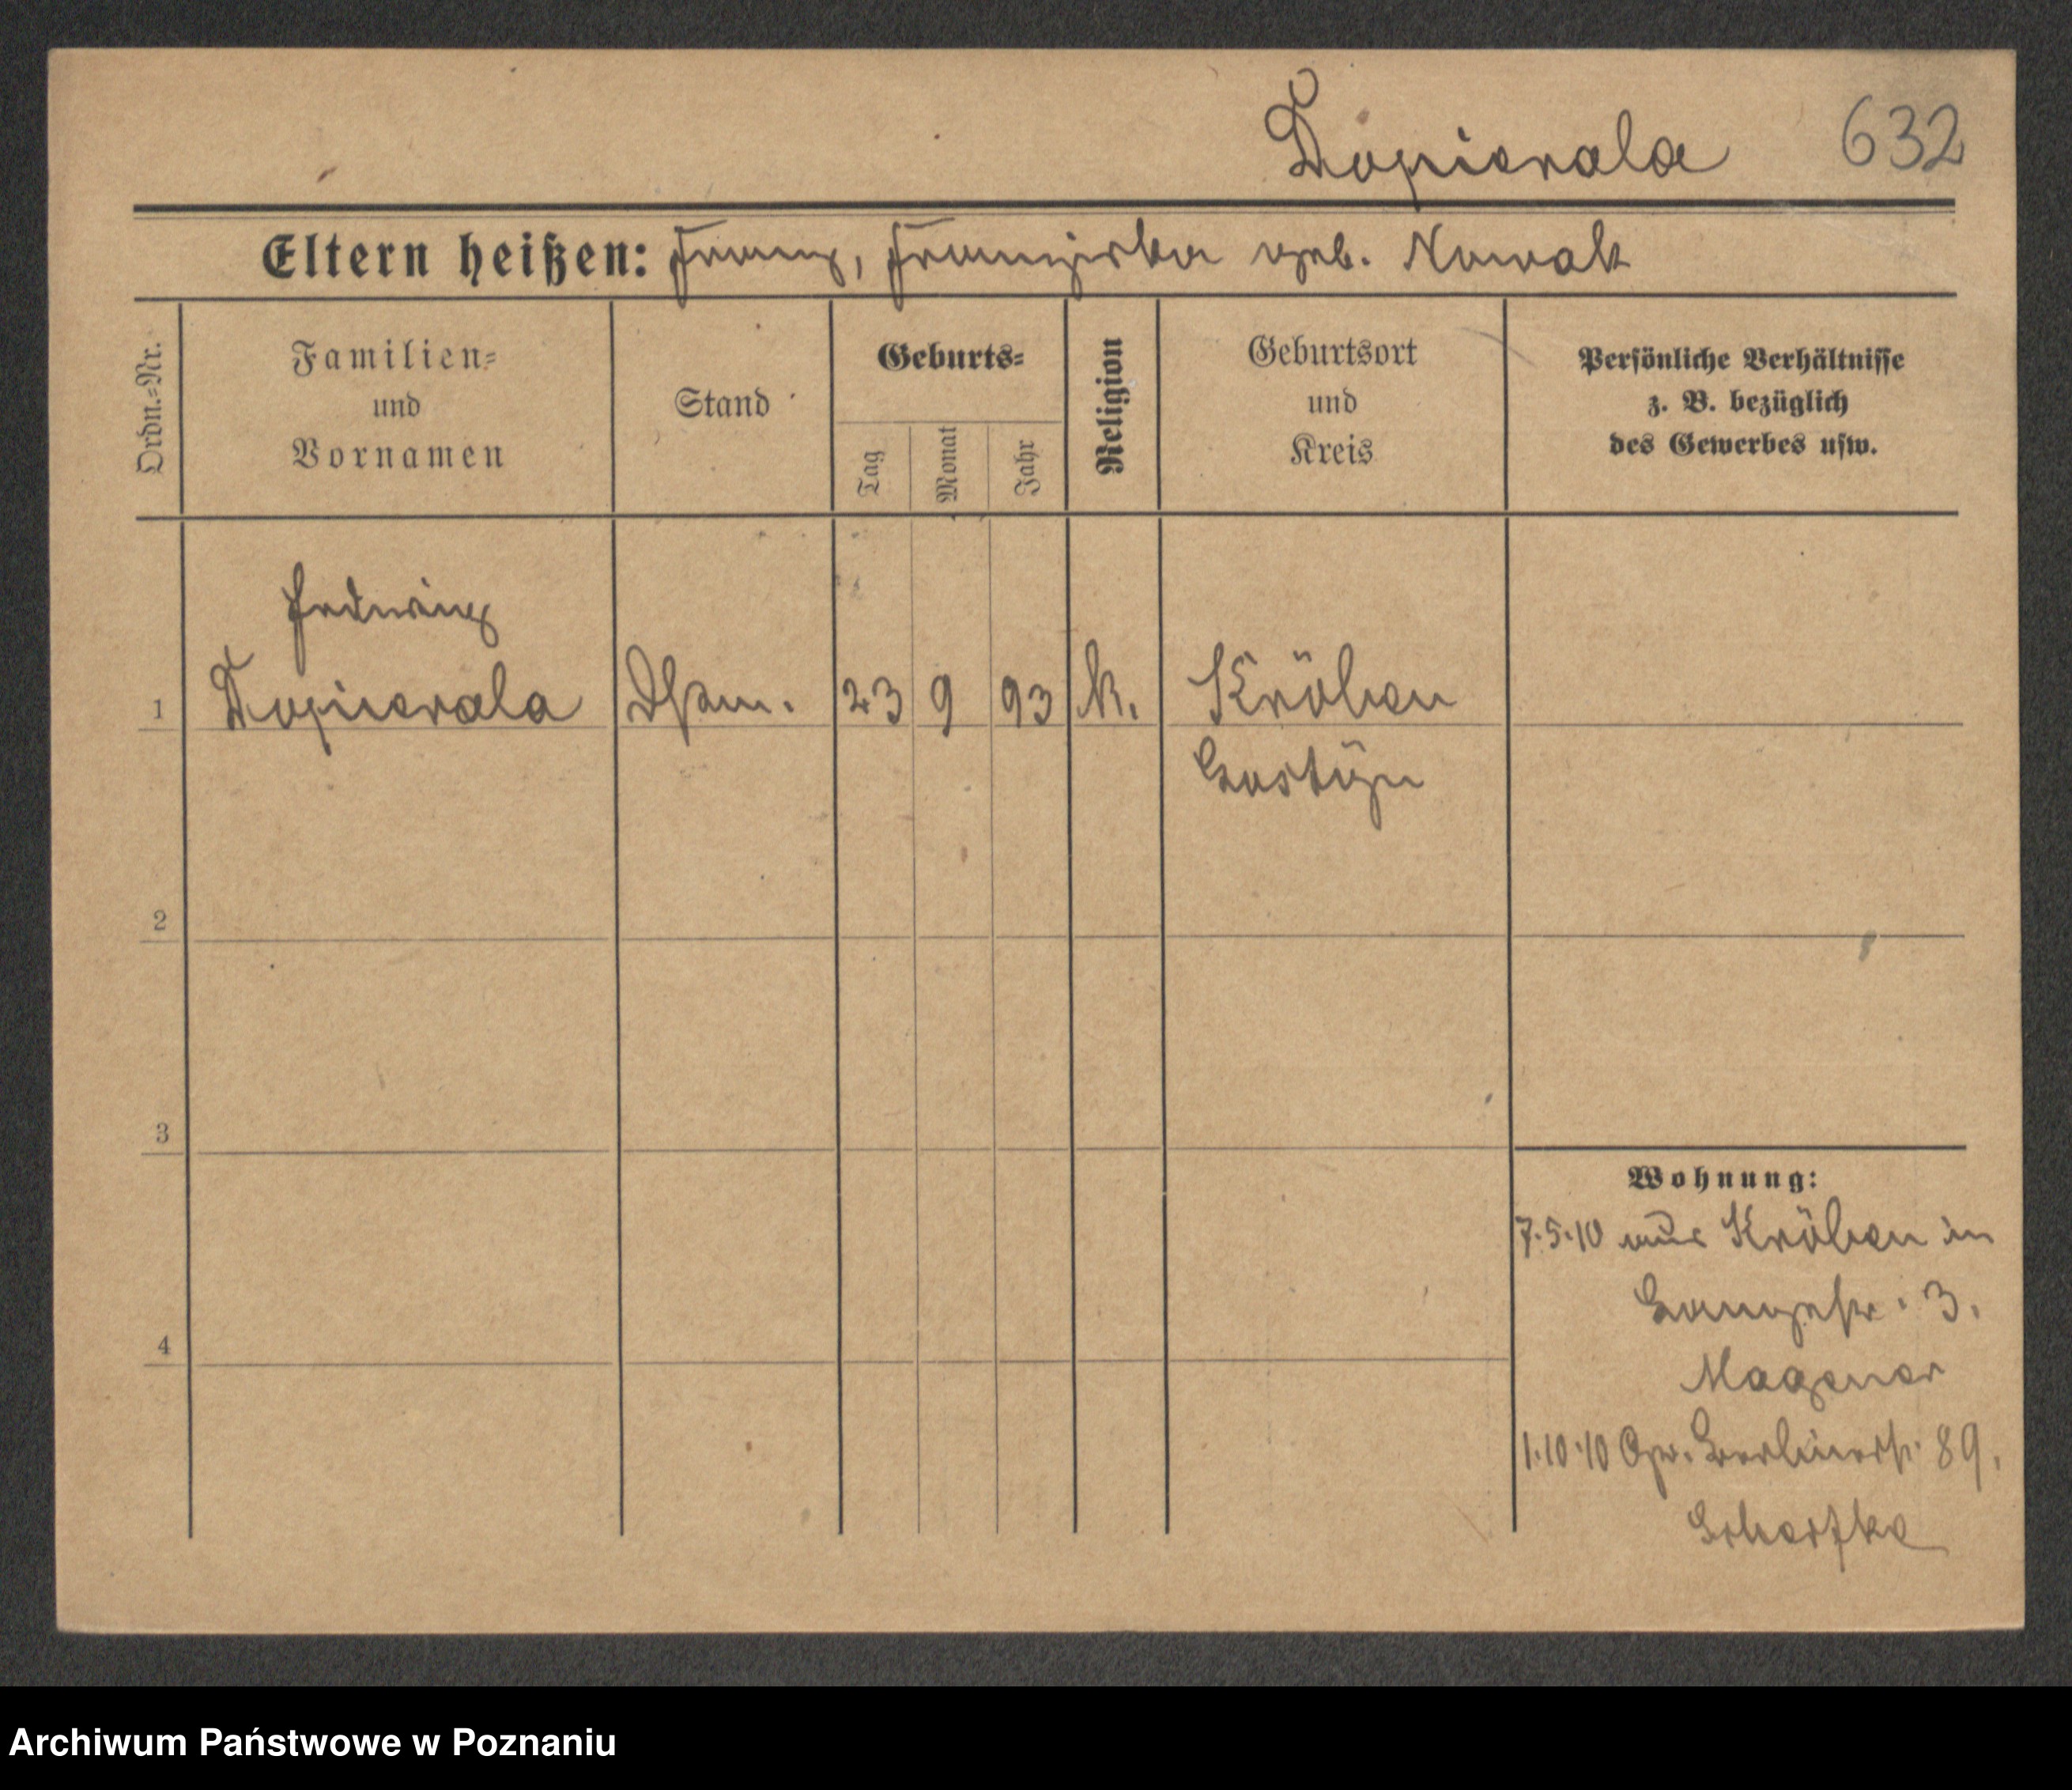 Dopierala 632
Eltern heißen: Franz, Franziska geb. Nowak
Ordn.-Nr.
Familien-
und
Vornamen
Stand
Geburts-
Tag
Monat
Jahr
Religion
Geburtsort
und
Kreis
Persönliche Verhältnisse
z. B. bezüglich
des Gewerbes usw.
Hedwig
1 Dopierala 23 9 93 k. Kröben
Gostÿn
2
3
4
Wohnung:
7.5.10 aus Kröben in
Langestr. 3.
Wagener
1.10.10 Gr. Berlinerstr. 89.
Archiwum Państwowe w Poznaniu